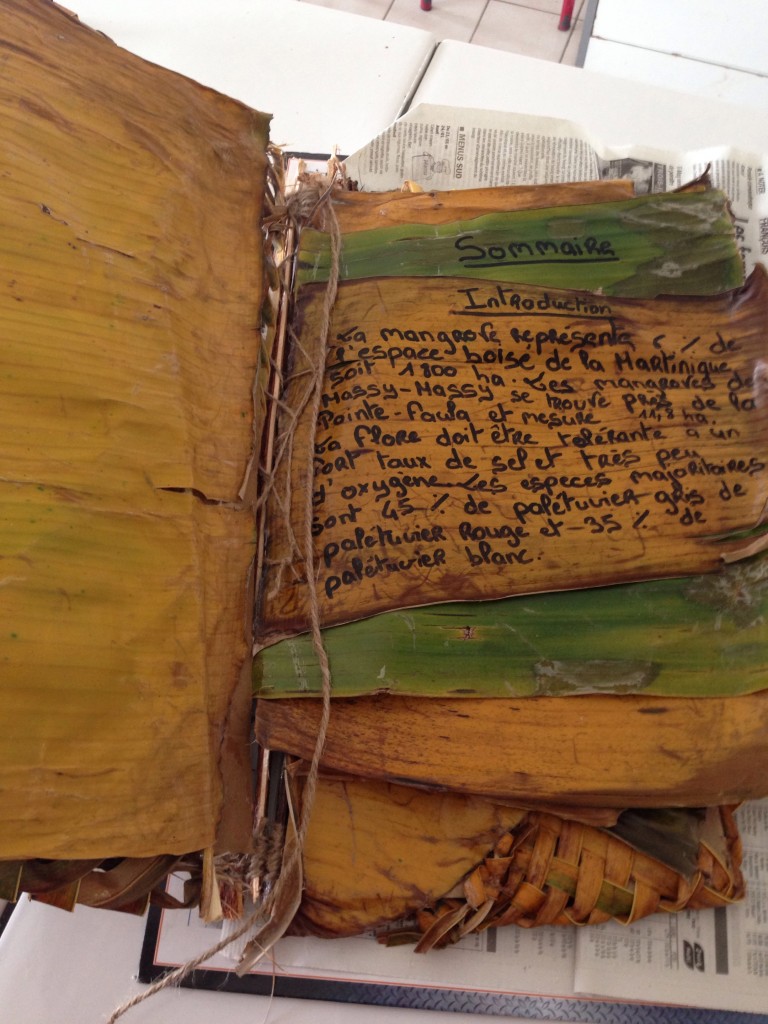 MENUS SUD
Sommaire
Introduction
La mangrove représente 6 % de
l'espace boisé de la Martinique
soit 1800 ha. Les mangroves de
Massy-Massy se trouve près de la
Pointe-Faula et mesure 11,8 ha.
La flore doit être tolérante à un
fort taux de sel et très peu
d'oxygène. Les espèces majoritaires
sont 45 % de palétuvier gris de
palétuvier rouge et 35 % de
palétuvier blanc.